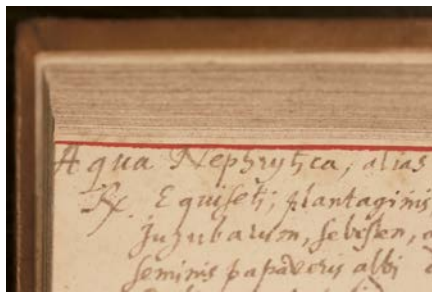 Aqua Nephrytica, alias
Rx Equiseti, plantaginis,
jujubarum, sebesten,
seminis papaveris albi